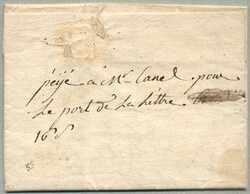 péyé a Mr Canel pour
Le port de La Lettre
16 s